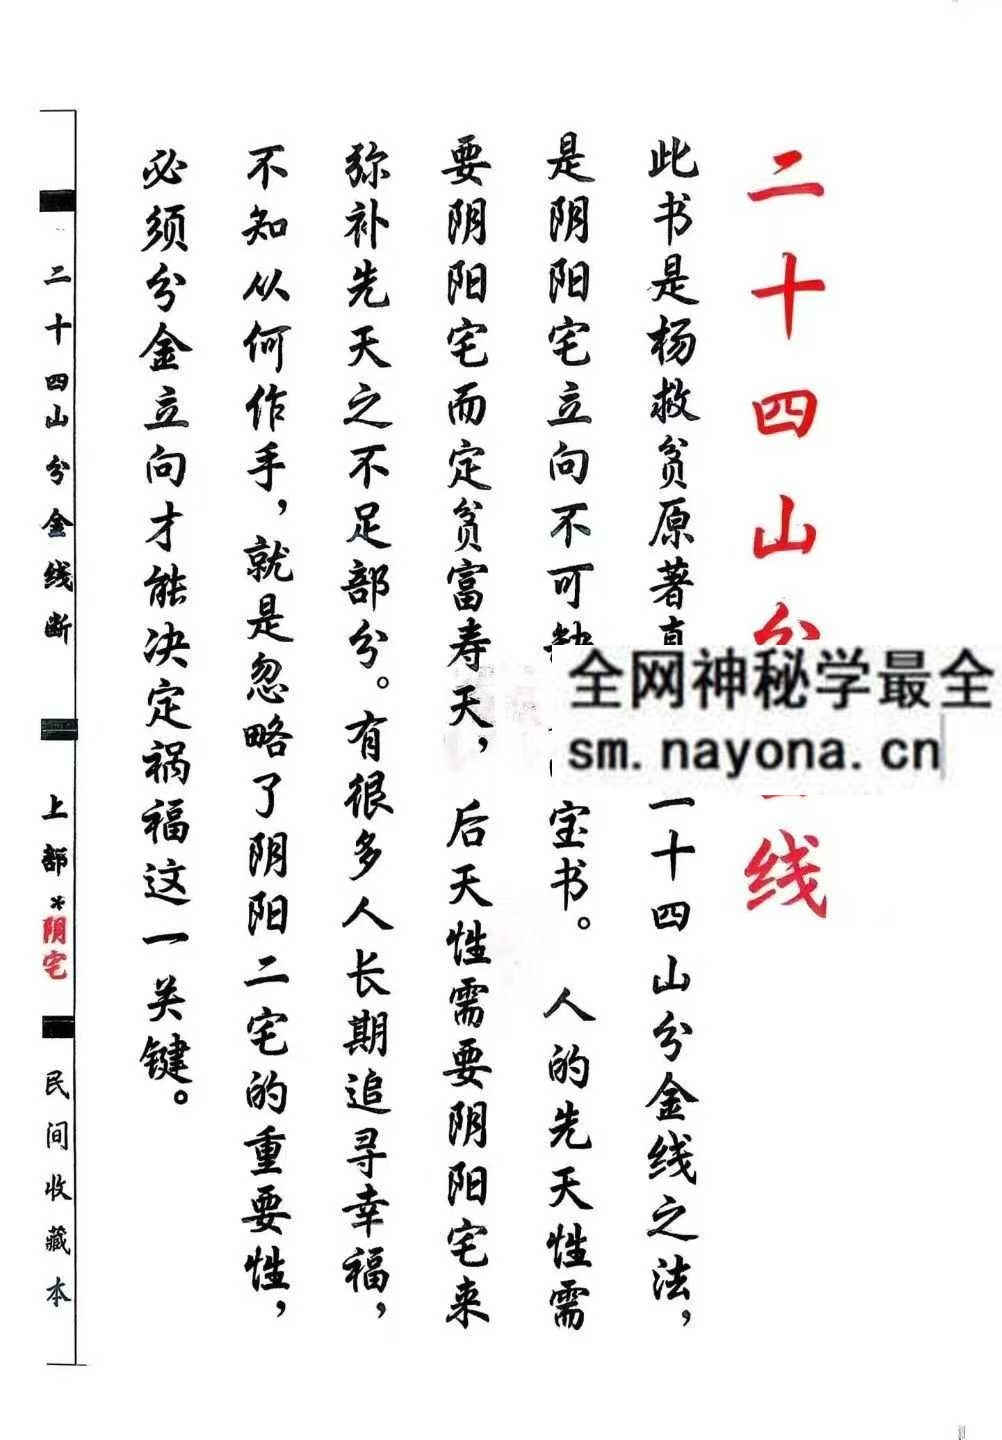 二十四山分金线
此书是杨救贫原著真一十四山分金线之法，
是阴阳宅立向不可缺宝书。 人的先天性需
要阴阳宅而定贫富寿夭， 后天性需要阴阳宅来
弥补先天之不足部分。有很多人长期追寻幸福，
不知从何作手，就是忽略了阴阳二宅的重要性，
必须分金立向才能决定祸福这一关键。
二十四山分金线断 上部*阴宅 民间收藏本
全网神秘学最全
sm.nayona.cn